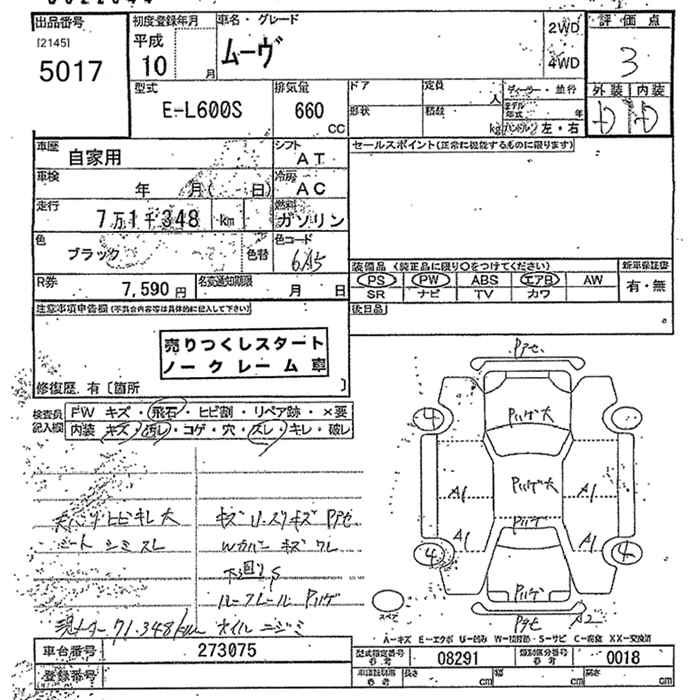 出品番号
[2145]
5017
初度登録年月
平成
10 月
車名・グレード
ムーヴ
2WD
4WD
評価点
3
外装 内装
D D
型式
E-L600S
排気量
660
CC
ドア
形状
定員
人
積載
kg
ディーラー・並行
モデル年式 年
ハンドル 左・右
車歴
自家用
シフト
AT
車検
年 月( 日)
冷房
AC
走行
7万1千348 km
燃料
ガソリン
色
ブラック
色替
色コード
R券
7,590 円
名変通知期限
月 日
セールスポイント(正常に機能するものに限ります)
装備品 (純正品に限り○をつけてください)
新車保証書
PS PW ABS エアB AW
SR ナビ TV カワ
有・無
後日品
注意事項申告欄(不具合内容等は具体的に記入して下さい)
売りつくしスタート
ノークレーム車
修復歴 有〔箇所 〕
検査員
記入欄
FW キズ・飛石・ヒビ割・リペア跡・×要
内装 キズ・汚レ・コゲ・穴・スレ・キレ・破レ
シート シミ スレ
Wカバー キズ ワレ
下廻りS
71.348km オイルニジミ
4
4
4
A1
A1
A1
A1
A2
スペア
A-キズ E-エクボ U-凹み W-補修跡 S-サビ C-腐食 XX-交換済
車台番号
273075
登録番号
型式指定番号
参考
08291
類別区分番号
参考
0018
長さ cm
幅 cm
高さ cm